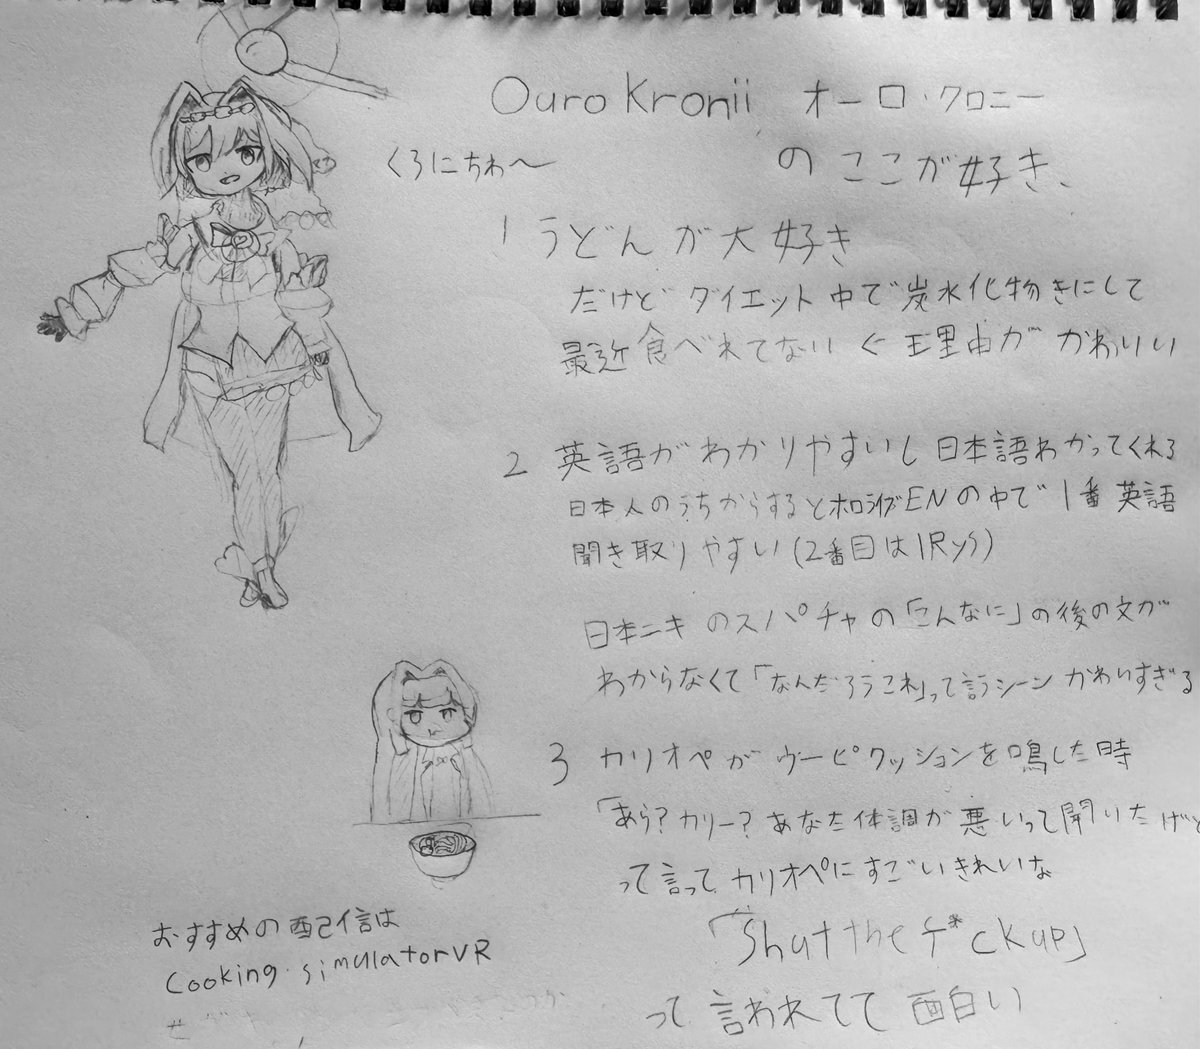 Ouro Kronii オーロ・クロニー
のここが好き、
くろにちわ〜
1 うどんが大好き
だけどダイエット中で炭水化物きにして
最近食べれてない ← 理由がかわいい
2 英語がわかりやすいし日本語わかってくれる
日本人のうちからするとホロライブENの中で1番英語
聞き取りやすい(2番目はIRyS)
日本ニキのスパチャの「こんなに」の後の文が
わからなくて「なんだろうこれ」って言うシーンかわいすぎる
3 カリオペがウーピクッションを鳴した時
「あら?カリー?あなた体調が悪いって聞いたけど
って言ってカリオペにすごいきれいな
「Shut the f*ck up」
って言われてて面白い
おすすめの配信は
Cooking simulator VR